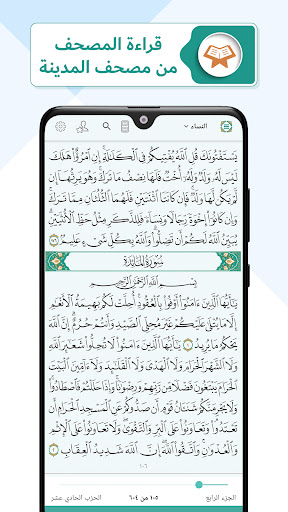 قراءة المصحف
من مصحف المدينة
النساء
يَسْتَفْتُونَكَ قُلِ ٱللَّهُ يُفْتِيكُمْ فِي ٱلْكَلَٰلَةِ إِنِ ٱمْرُؤٌا۟ هَلَكَ
لَيْسَ لَهُۥ وَلَدٌ وَلَهُۥٓ أُخْتٌ فَلَهَا نِصْفُ مَا تَرَكَ وَهُوَ يَرِثُهَآ إِن
لَّمْ يَكُن لَّهَا وَلَدٌ فَإِن كَانَتَا ٱثْنَتَيْنِ فَلَهُمَا ٱلثُّلُثَانِ مِمَّا تَرَكَ
وَإِن كَانُوٓا۟ إِخْوَةً رِّجَالًا وَنِسَآءً فَلِلذَّكَرِ مِثْلُ حَظِّ ٱلْأُنثَيَيْنِ
يُبَيِّنُ ٱللَّهُ لَكُمْ أَن تَضِلُّوا۟ وَٱللَّهُ بِكُلِّ شَىْءٍ عَلِيمٌۢ ١٧٦
سُورَةُ المَائِدَةِ
بِسْمِ ٱللَّهِ ٱلرَّحْمَٰنِ ٱلرَّحِيمِ
يَٰٓأَيُّهَا ٱلَّذِينَ ءَامَنُوٓا۟ أَوْفُوا۟ بِٱلْعُقُودِ أُحِلَّتْ لَكُم بَهِيمَةُ ٱلْأَنْعَٰمِ
إِلَّا مَا يُتْلَىٰ عَلَيْكُمْ غَيْرَ مُحِلِّى ٱلصَّيْدِ وَأَنتُمْ حُرُمٌ إِنَّ ٱللَّهَ
يَحْكُمُ مَا يُرِيدُ ١ يَٰٓأَيُّهَا ٱلَّذِينَ ءَامَنُوا۟ لَا تُحِلُّوا۟ شَعَٰٓئِرَ ٱللَّهِ
وَلَا ٱلشَّهْرَ ٱلْحَرَامَ وَلَا ٱلْهَدْىَ وَلَا ٱلْقَلَٰٓئِدَ وَلَآ ءَآمِّينَ ٱلْبَيْتَ
ٱلْحَرَامَ يَبْتَغُونَ فَضْلًا مِّن رَّبِّهِمْ وَرِضْوَٰنًا وَإِذَا حَلَلْتُمْ فَٱصْطَادُوا۟
وَلَا يَجْرِمَنَّكُمْ شَنَـَٔانُ قَوْمٍ أَن صَدُّوكُمْ عَنِ ٱلْمَسْجِدِ ٱلْحَرَامِ أَن
تَعْتَدُوا۟ وَتَعَاوَنُوا۟ عَلَى ٱلْبِرِّ وَٱلتَّقْوَىٰ وَلَا تَعَاوَنُوا۟ عَلَى ٱلْإِثْمِ
وَٱلْعُدْوَٰنِ وَٱتَّقُوا۟ ٱللَّهَ إِنَّ ٱللَّهَ شَدِيدُ ٱلْعِقَابِ ٢
١٠٦
الجزء الرابع
١٠٥ من ٦٠٤
الحزب الحادي عشر